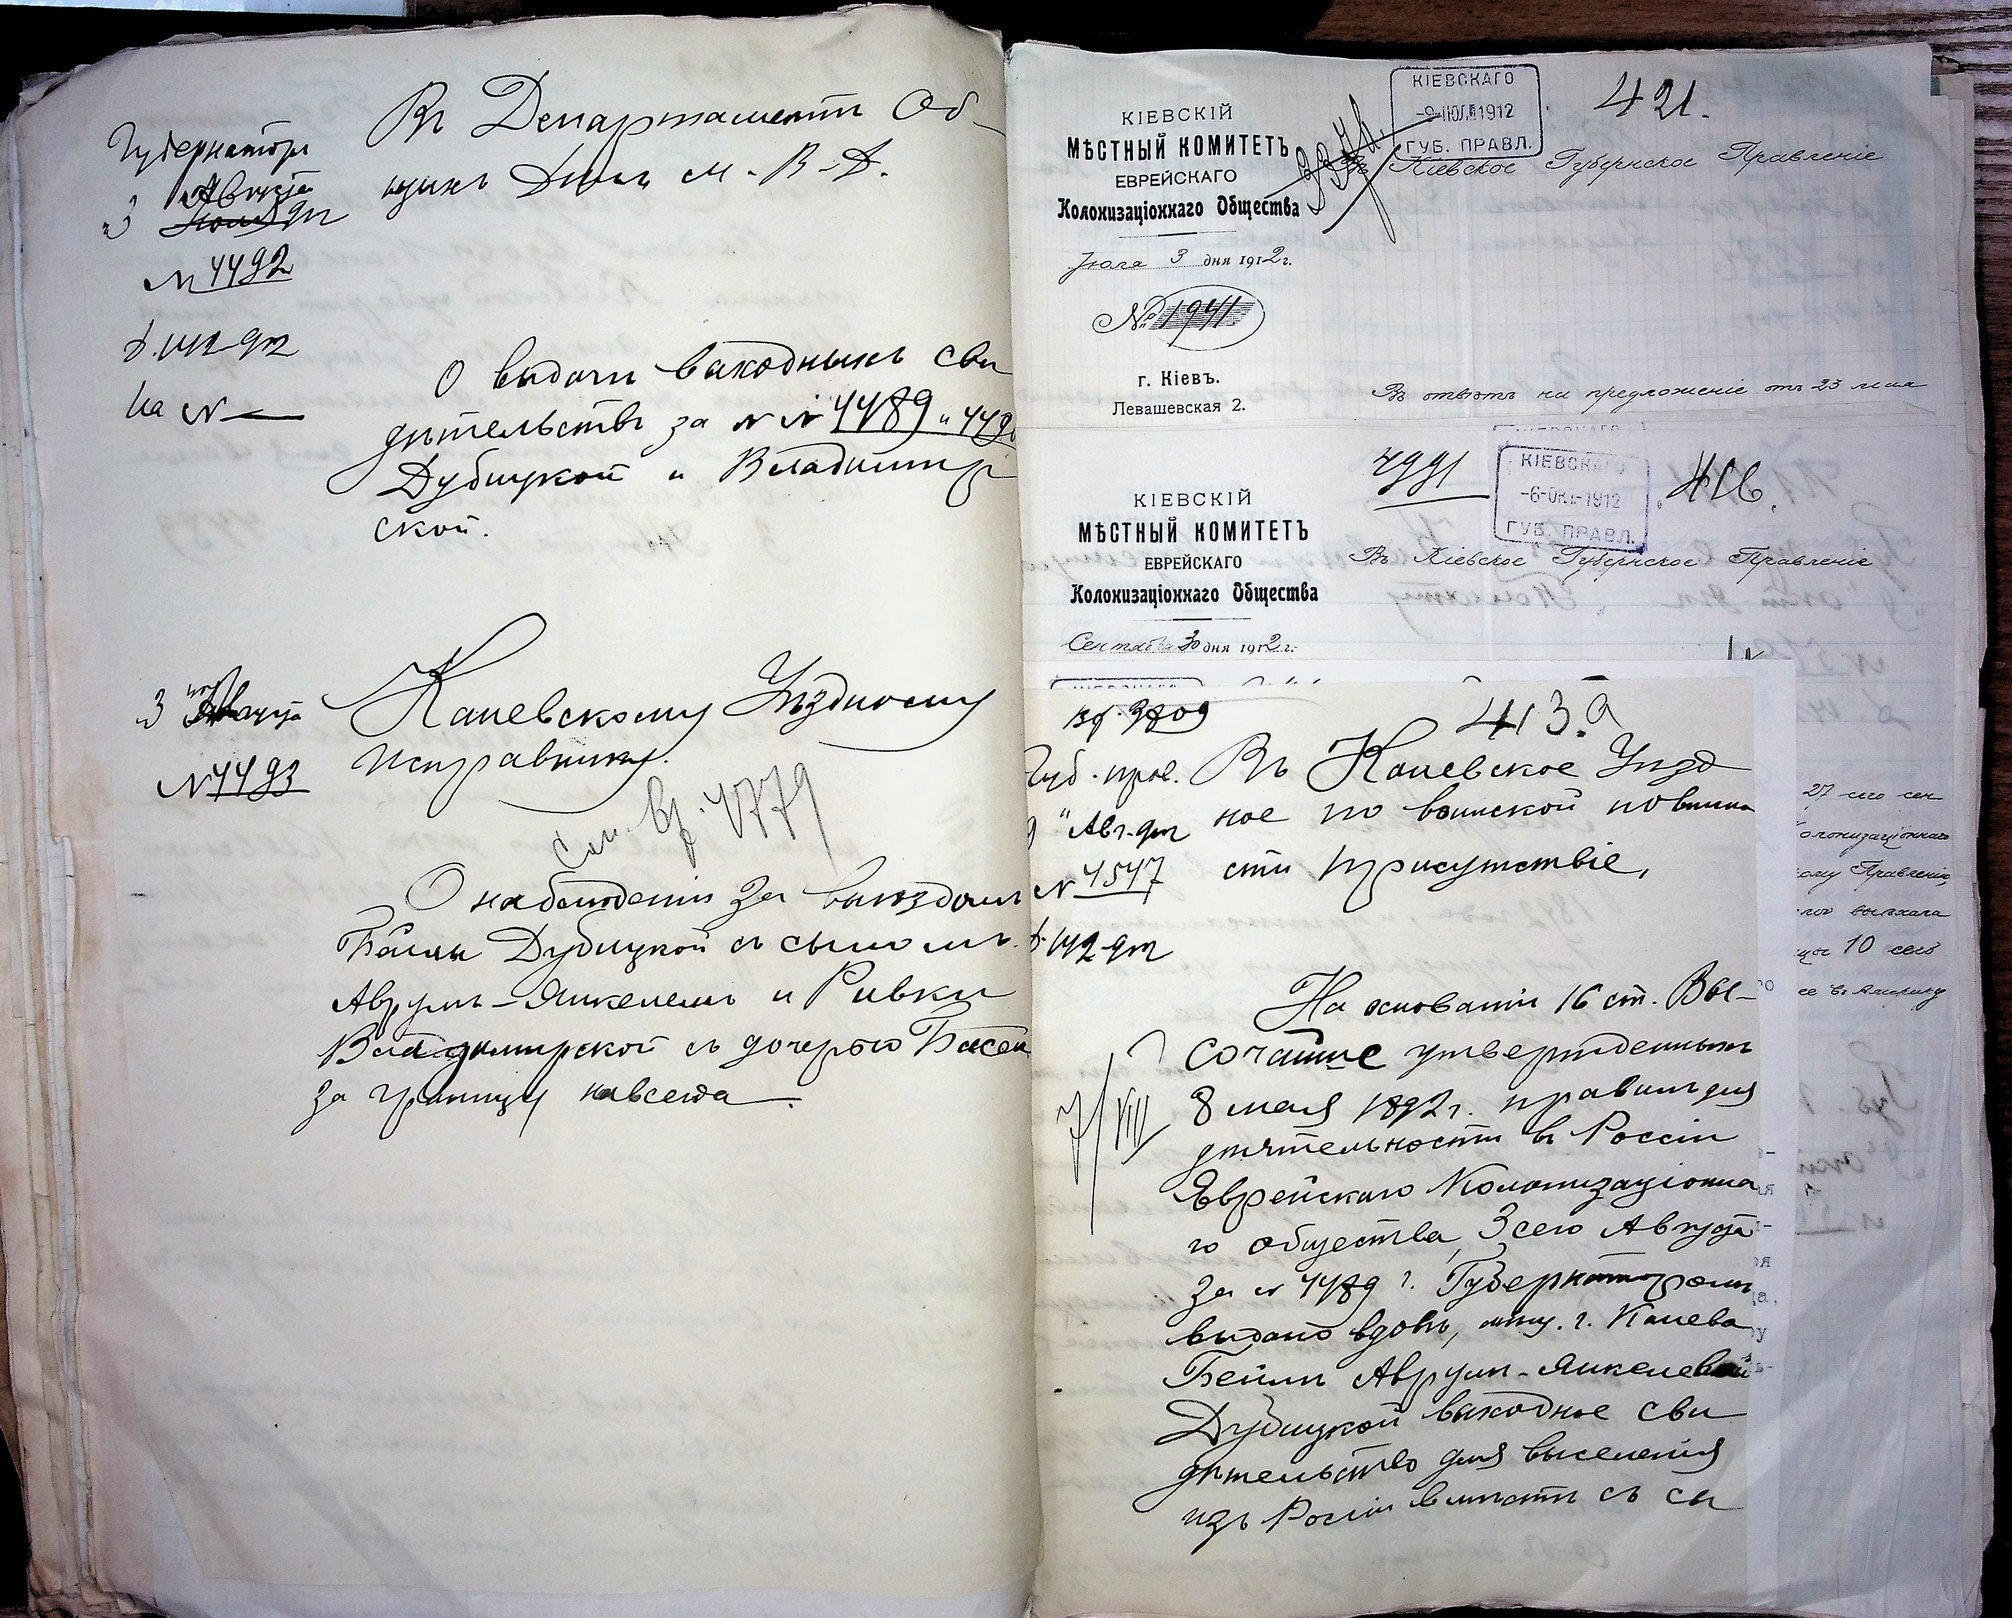 Губернаторъ
Августа
3 Іюля дня
№ 4492
На №
Въ Департаментъ Об-
щихъ Дѣлъ М-В-Д.
О выдачи выходныхъ сви
дѣтельствъ за №№ 4489 и 449
Дубицкой и Владимир
ской.
3 Августа
№ 4493
Каневскому Уѣздному
Исправнику.
См. Вх. 4779
О наблюденіи за выѣздомъ
Бейлы Дубицкой съ сыномъ
Аврумъ-Янкелемъ и Ривки
Владимирской съ дочерью Басей
за границу навсегда.
КІЕВСКІЙ
МѢСТНЫЙ КОМИТЕТЪ
ЕВРЕЙСКАГО
Колонизаціоннаго Общества
Іюля 3 дня 1912 г.
№ 1941
г. Кіевъ.
Левашевская 2.
КІЕВСКАГО
-9-ІЮЛ 1912
ГУБ. ПРАВЛ.
421.
Въ Кіевское Губернское Правленіе
Въ отвѣтъ на предложеніе отъ 23 мая
КІЕВСКІЙ
МѢСТНЫЙ КОМИТЕТЪ
ЕВРЕЙСКАГО
Колонизаціоннаго Общества
Сентября 30 дня 1912 г.
4991
КІЕВСКАГО
-6-ОКТ-1912
ГУБ. ПРАВЛ.
416.
Въ Кіевское Губернское Правленіе
27 сего сен
олонизаціоннаго
ому Правленію,
выѣхала
10 сего
въ Америку
Вх. 3809
413а
Губ. прав.
Авг. дня
№ 4547
7/VIII
Въ Каневское Уѣзд
ное по воинской повинно
сти Присутствіе.
На основаніи 16 ст. Вы-
сочайше утвержденныхъ
8 мая 1892 г. правилъ для
дѣятельности въ Россіи
Еврейскаго Колонизаціонна
го общества, 3 сего Августа
за № 4489 г. Губернаторомъ
выдано вдовѣ, мѣщ. г. Канева
Бейлѣ Аврумъ-Янкелевой
Дубицкой выходное сви
дѣтельство для выселенія
изъ Россіи вмѣстѣ съ сы